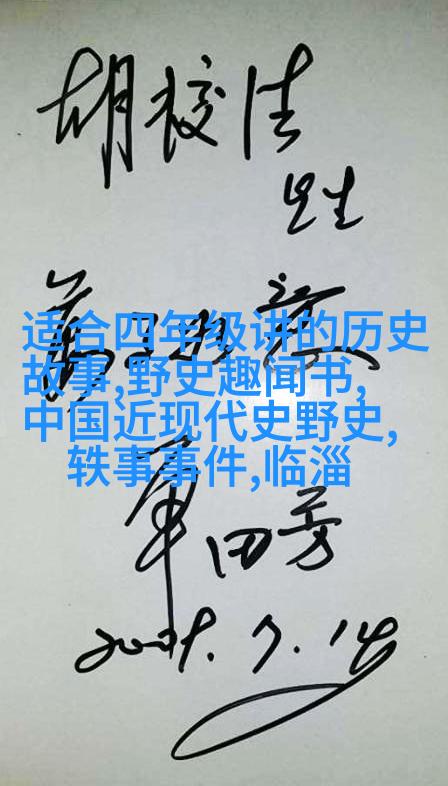 胡校
先生
适合四年级讲的历史
故事,野史趣闻书,
中国近现代史野史,
轶事事件,临淄
单田芳